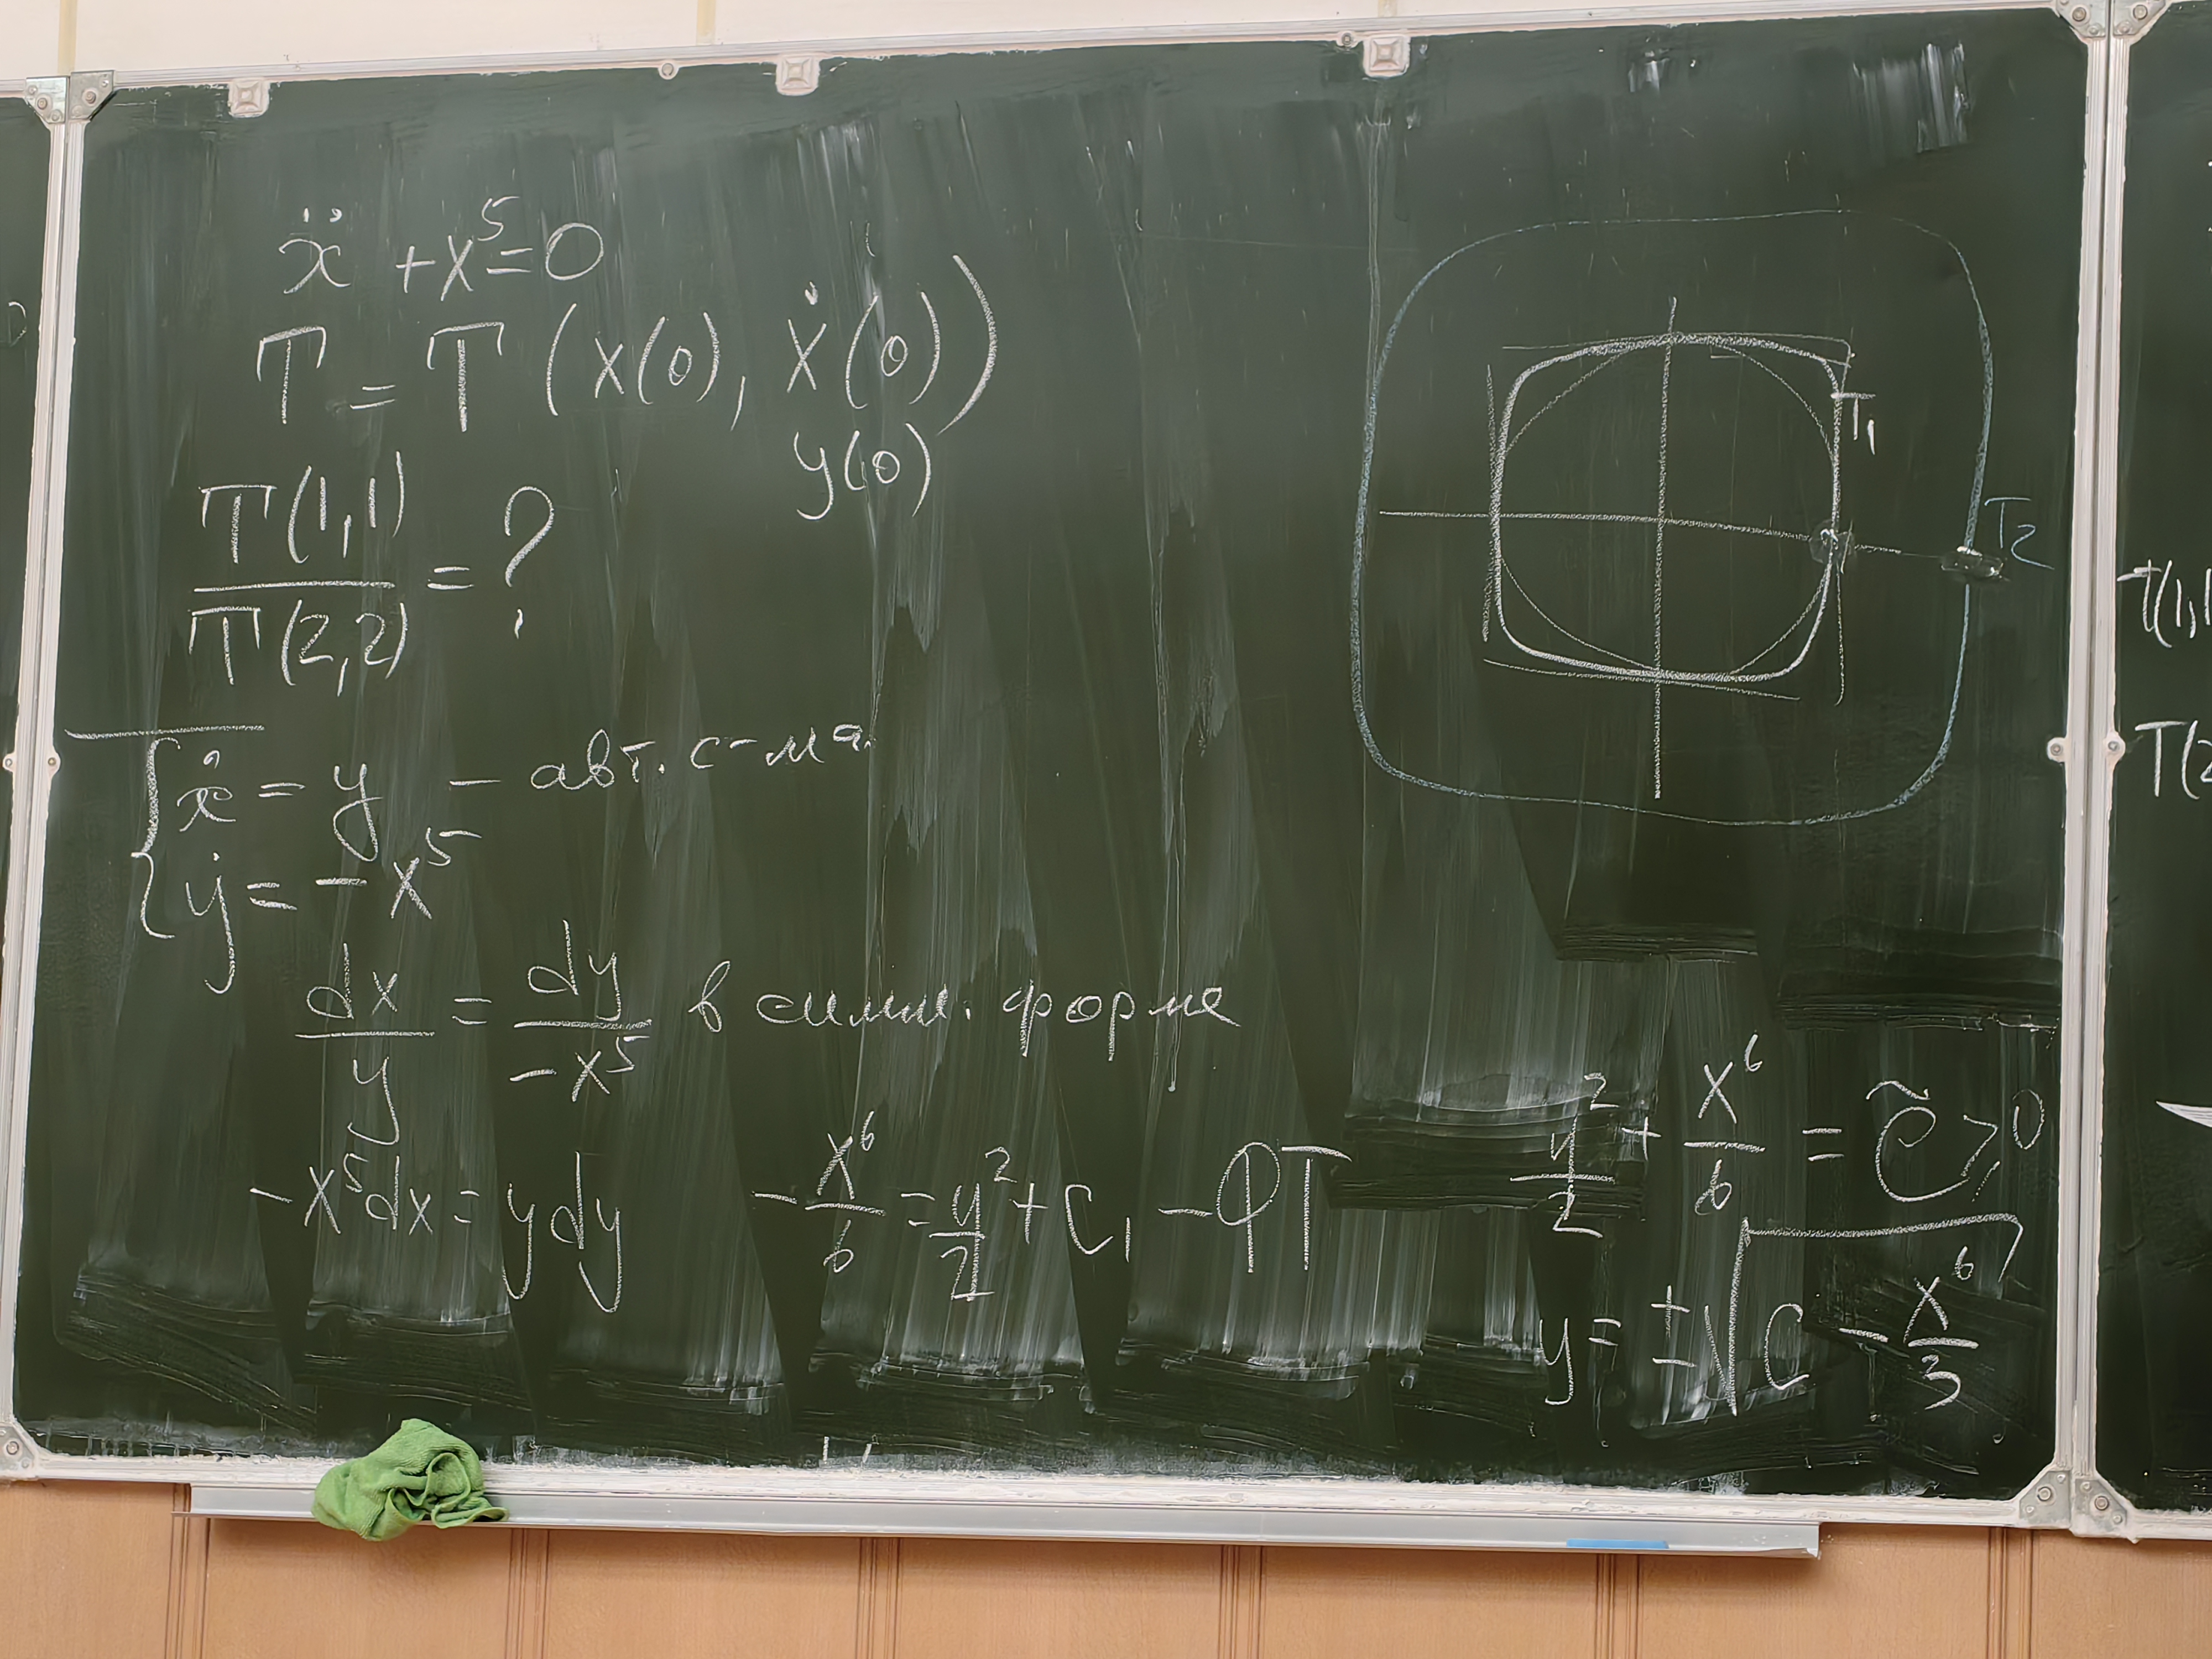 ẍ + x⁵ = 0
T = T (x(0), ẋ(0))
y(0)
T(1,1) / T(2,2) = ?
{ ẋ = y – авт. с-ма.
{ ẏ = -x⁵
dx / y = dy / -x⁵ в симм. форме
-x⁵dx = ydy
-x⁶/6 = y²/2 + C₁ - ФТ
T₁
T₂
y²/2 + x⁶/6 = C̃ ⩾ 0
y = ±√(C - x⁶/3)
T(1,1
T(2